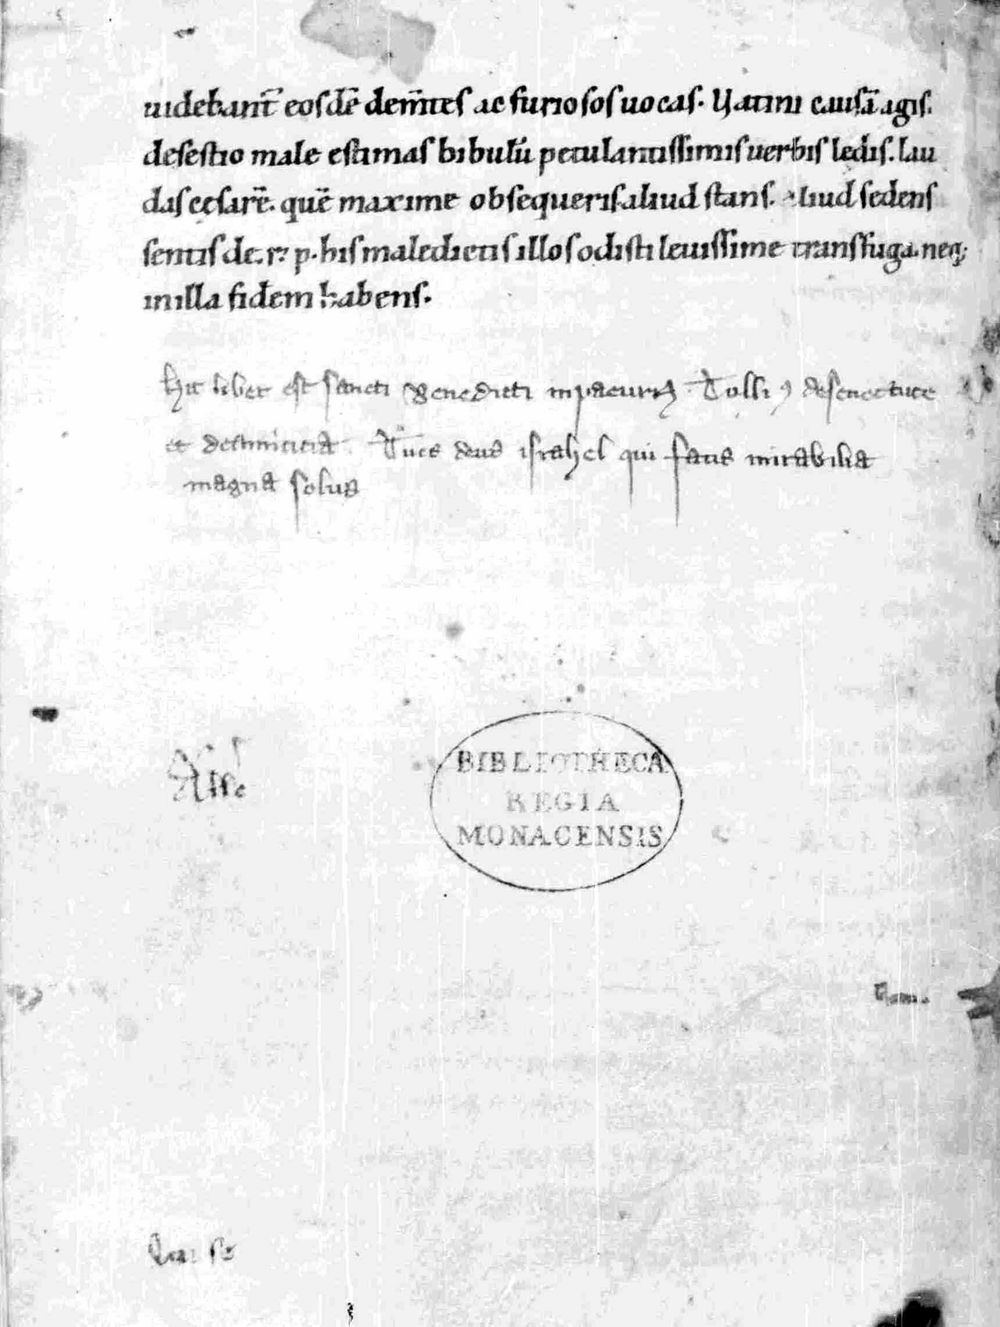 uidebant̄ eosdē dem̄tes ac furiosos uocas. Vatini causā agis.
de sestio male estimas bibulū petulantissimis uerbis ledis. lau
das cesarē. quē maxime obsequeris aliud stans. aliud sedens
sentis de. r. p. his maledicens illos odisti leuissime transfuga. neq;
in illa fidem habens.
hic liber est sancti Benedicti Tulli de senectute
et de amicicia deus israhel qui facis mirabilia
magna solus
BIBLIOTHECA
REGIA
MONACENSIS